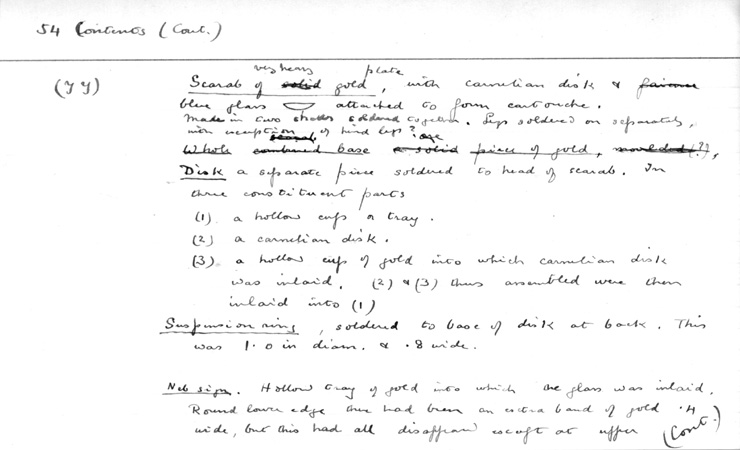 54 Contents (Cont.)
(YY)
very heavy plate
Scarab of solid gold, with carnelian disk &
blue glass attached to form cartouche.
Made in two shells soldered together. Legs soldered on separately,
with exception of hind legs?
Whole base a solid piece of gold, moulded (?),
Disk a separate piece soldered to head of scarab. In
three constituent parts
(1) a hollow cup or tray.
(2) a carnelian disk.
(3) a hollow cup of gold into which carnelian disk
was inlaid. (2) & (3) thus assembled were then
inlaid into (1)
Suspension ring, soldered to base of disk at back. This
was 1.0 in diam. & .8 wide.
Neb sign. Hollow tray of gold into which the glass was inlaid.
Round lower edge there had been an extra band of gold .4
wide, but this had all disappeared except at upper
(Cont.)